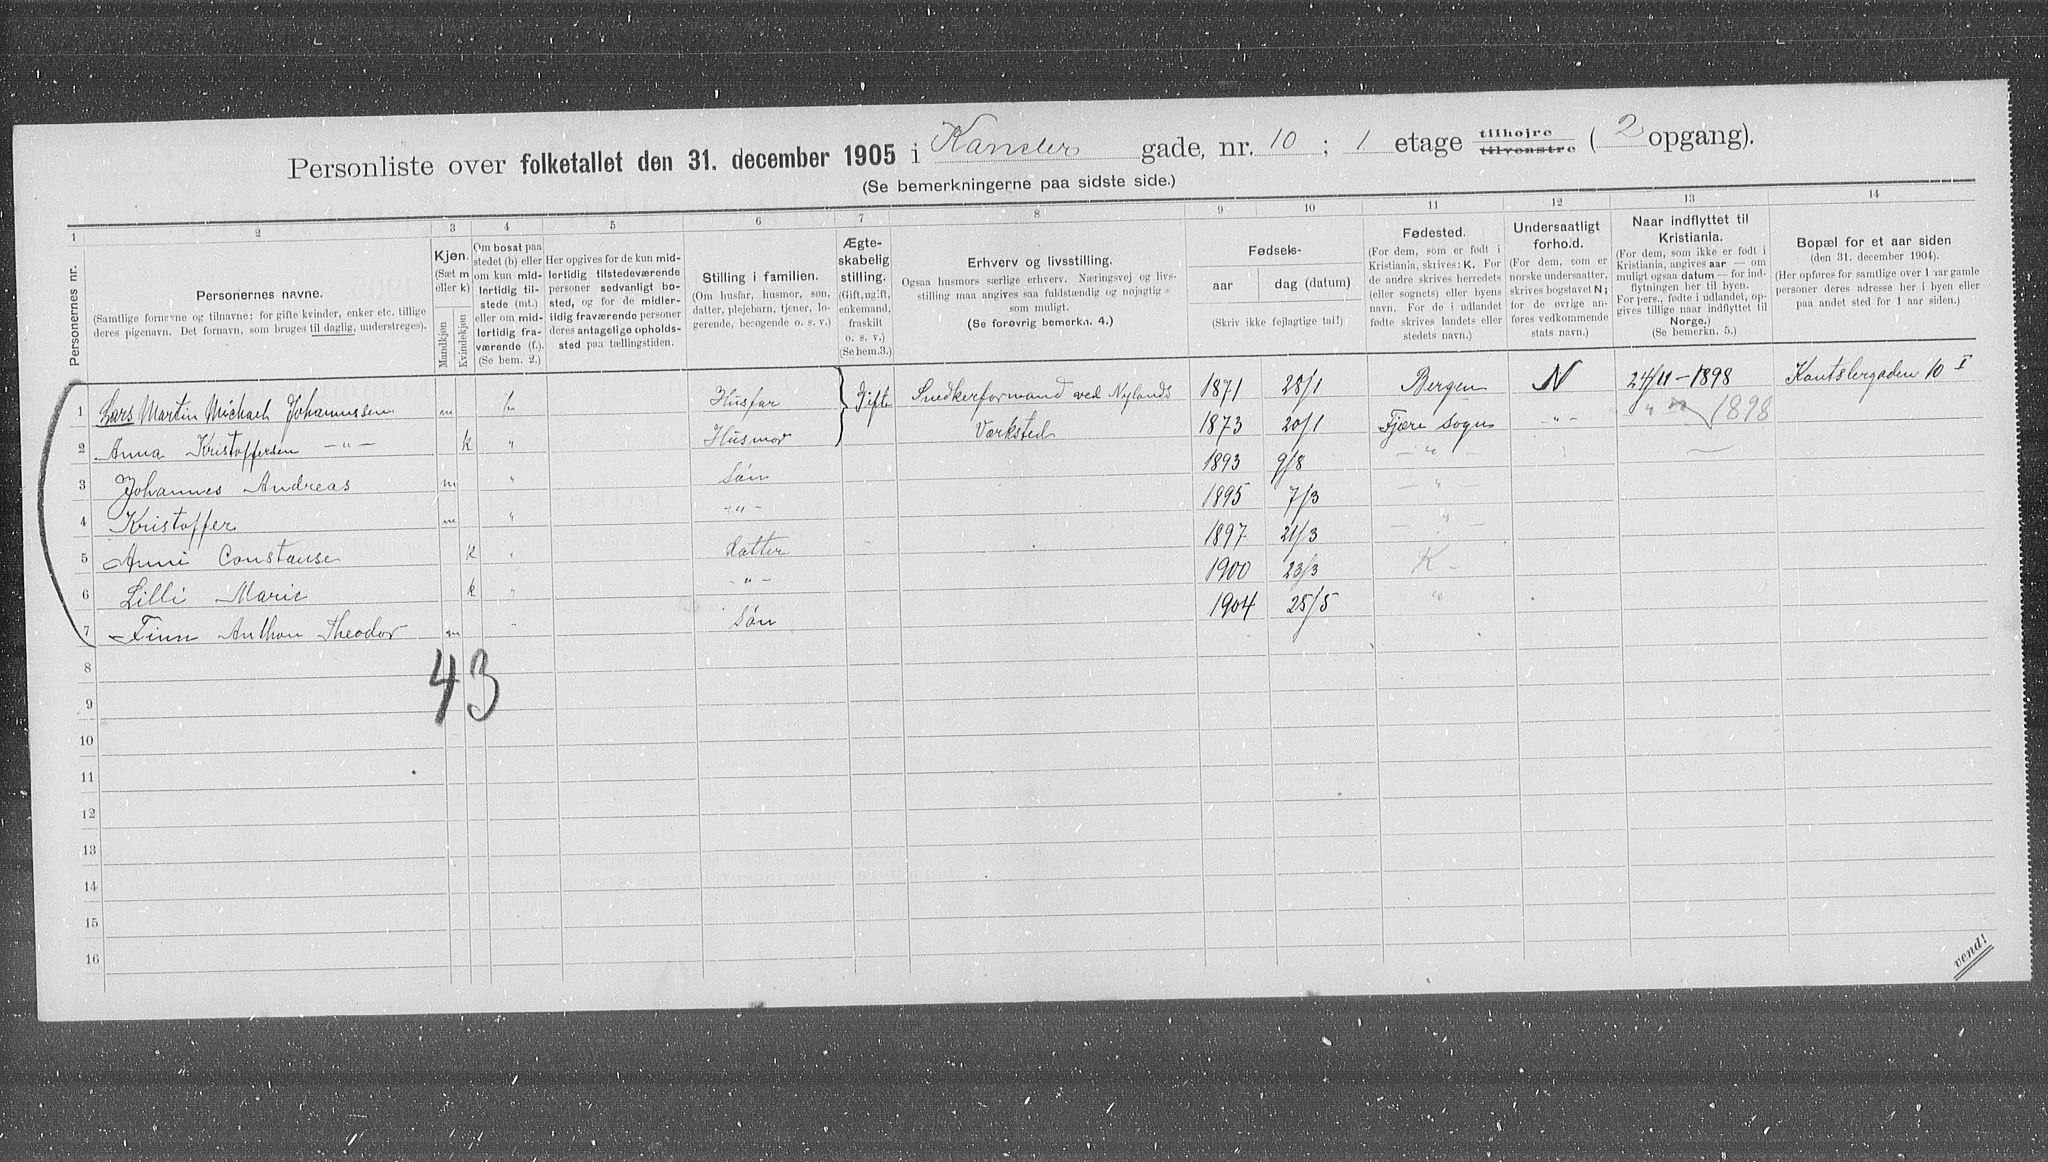 Personliste over folketallet den 31. december 1905 i Kansler gade, nr. 10 ; 1 etage tilhøjre tilvenstre ( 2 opgang).
(Se bemerkningerne paa sidste side.)
1 2 3 4 5 6 7 8 9 10 11 12 13 14
Personernes nr.
Personernes navne.
(Samtlige fornavne og tilnavne; for gifte kvinder, enker etc. tillige deres pigenavn. Det fornavn, som bruges til daglig, understreges).
Kjøn.
(Sæt m eller k)
Mandkjøn
Kvindekjøn
Om bosat paa stedet (b) eller om kun midlertidig tilstede (mt.) eller om midlertidig fraværende (f.). (Se bem. 2.)
Her opgives for de kun midlertidig tilstedeværende personer sedvanligt bosted, og for de midlertidig fraværende personer deres antagelige opholdssted paa tællingstiden.
Stilling i familien.
(Om husfar, husmor, søn, datter, plejebarn, tjener, logerende, besøgende o. s. v.)
Ægteskabelig stilling.
(Gift, ugift, enkemand, fraskilt o. s. v.)
(Se bem.3.)
Erhverv og livsstilling.
Ogsaa husmors særlige erhverv. Næringsvej og livsstilling maa angives saa fuldstændig og nøjagtig som muligt.
(Se forøvrig bemerkn. 4.)
Fødsels-
aar
dag (datum)
(Skriv ikke fejlagtige tal!)
Fødested.
(For dem, som er født i Kristiania, skrives: K. For de andre skrives herredets (eller sognets) eller byens navn. For de i udlandet fødte skrives landets eller stedets navn.)
Undersaatligt forhold.
(For dem, som er norske undersaatter, skrives bogstavet N; for de øvrige anføres vedkommende stats navn.)
Naar indflyttet til Kristiania.
(For dem, som ikke er født i Kristiania, angives aar — om muligt ogsaa datum — for indflytningen her til byen. For pers., fødte i udlandet, opgives tillige naar indflyttet til Norge.)
(Se bemerkn. 5.)
Bopæl for et aar siden
(den 31. december 1904).
(Her opføres for samtlige over 1 aar gamle personer deres adresse her i byen eller paa andet sted for 1 aar siden.)
1 Lars Martin Michael Johannessen m b Husfar Gift Snedkerformand ved Nylands 1871 28/1 Bergen N 24/11-1898 Kantslergaden 10 I
2 Anna Kristoffersen -"- k " Husmor Værksted 1873 20/1 Fjære Sogn -"- " 1898
3 Johannes Andreas m " Søn 1893 9/8 -"-
4 Kristoffer m " -"- 1895 7/3 -"-
5 Anni Constanse k " datter 1897 21/3 -"-
6 Lilli Marie k " -"- 1900 23/3 K-
7 Finn Anthon Theodor m " Søn 1904 25/5 "
8
43
9
10
11
12
13
14
15
16
vend!